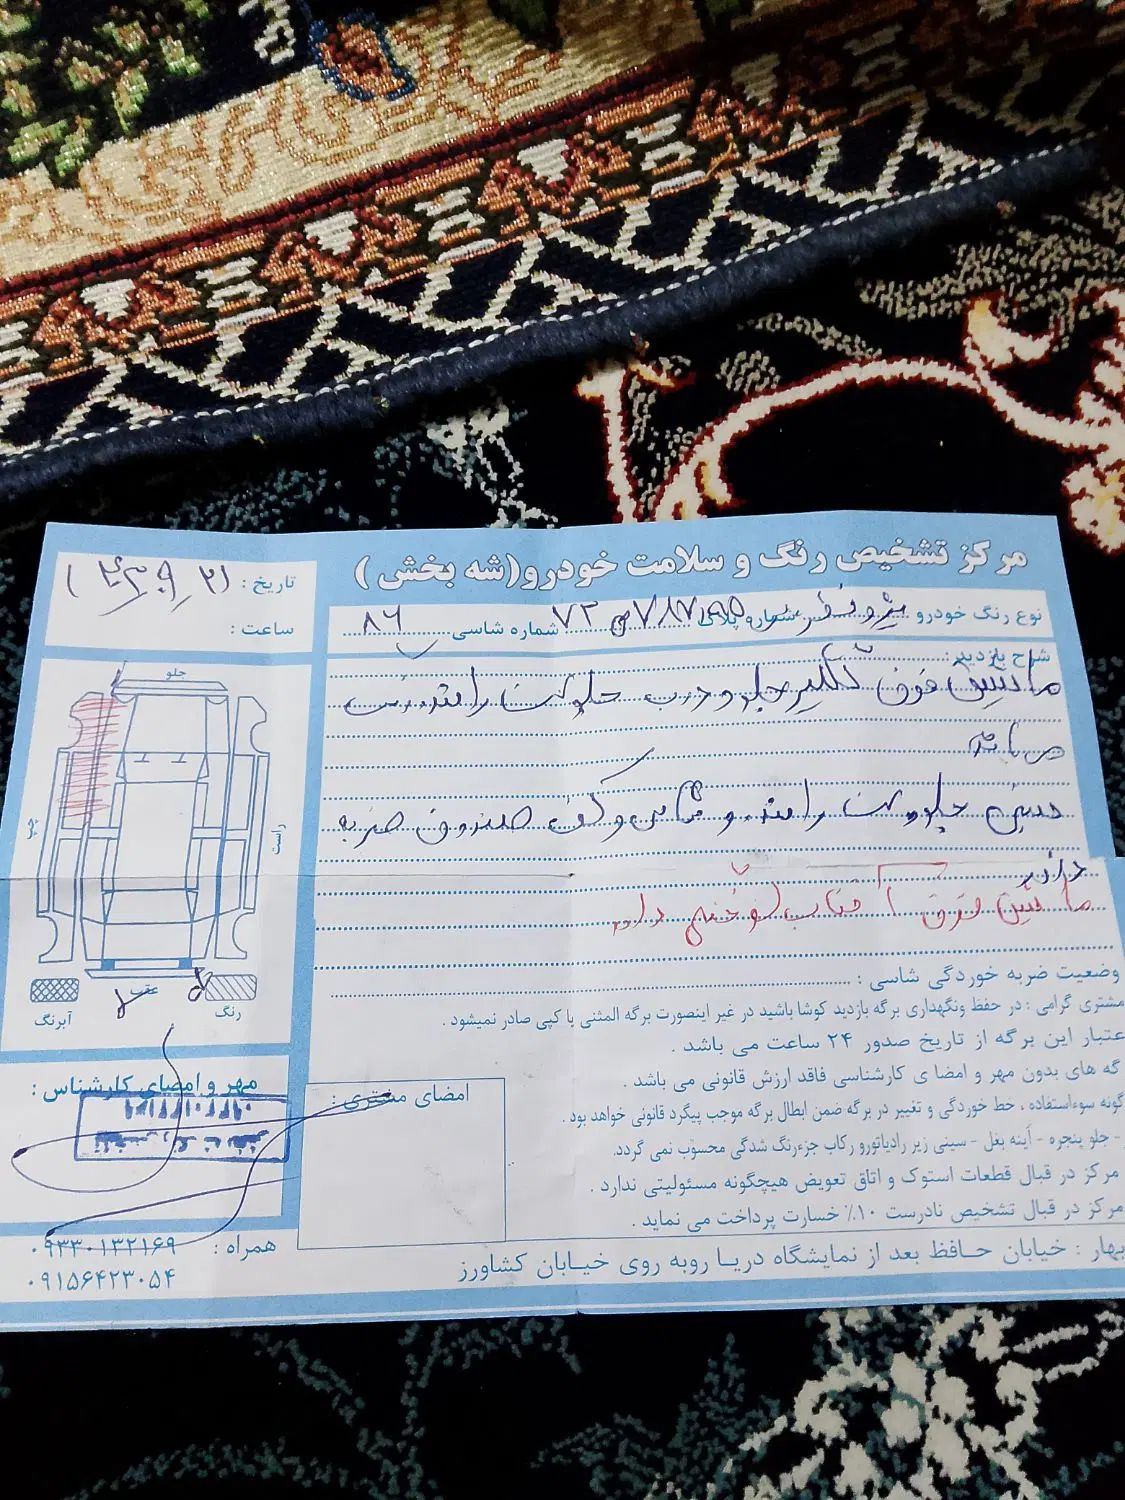 مرکز تشخیص رنگ و سلامت خودرو (شه بخش)
تاریخ :
ساعت :
نوع رنگ خودرو شماره پلاک ۷۲ شماره شاسی ۸۶
شرح بازدید :
ماشین فوق گلگیر جلو و درب جلو سمت راننده رنگ
می باشد
سینی جلو سمت راننده و و کف صندوق ضربه
دارد
ماشین فوق آفتاب سوختگی دارد
وضعیت ضربه خوردگی شاسی :
مشتری گرامی : در حفظ ونگهداری برگه بازدید کوشا باشید در غیر اینصورت برگه المثنی یا کپی صادر نمیشود .
عتبار این برگه از تاریخ صدور ۲۴ ساعت می باشد .
گه های بدون مهر و امضا ی کارشناسی فاقد ارزش قانونی می باشد .
گونه سوءاستفاده ، خط خوردگی و تغییر در برگه ضمن ابطال برگه موجب پیگرد قانونی خواهد بود .
- جلو پنجره - آینه بغل - سینی زیر رادیاتورو رکاب جزءرنگ شدگی محسوب نمی گردد.
مرکز در قبال قطعات استوک و اتاق تعویض هیچگونه مسئولیتی ندارد .
مرکز در قبال تشخیص نادرست ۱۰٪ خسارت پرداخت می نماید .
جلو
چپ
راست
عقب
رنگ
آبرنگ
مهر و امضای کارشناس :
امضای مشتری :
بهار : خیابان حافظ بعد از نمایشگاه دریا روبه روی خیابان کشاورز
همراه : ۰۹۳۳۰۱۳۲۱۶۹
۰۹۱۵۶۴۲۳۰۵۴